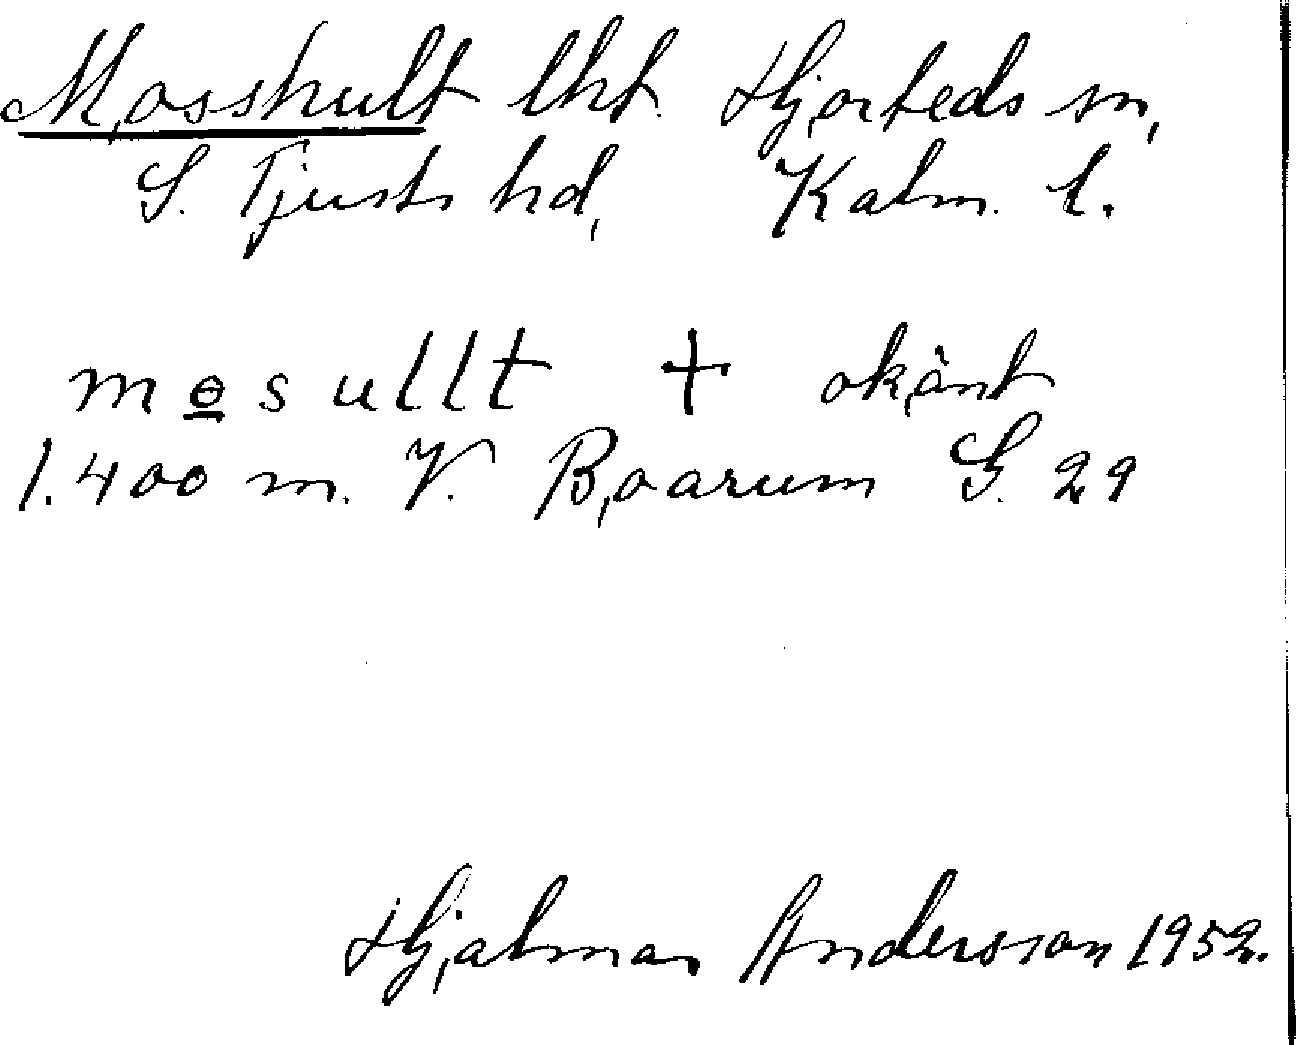 Mosshult lht. Hjorteds sn,
S. Tjusts hd, Kalm. l.
mɵsullt + okänt
1.400 m. V. Boarum G. 29
Hjalmar Andersson 1952.